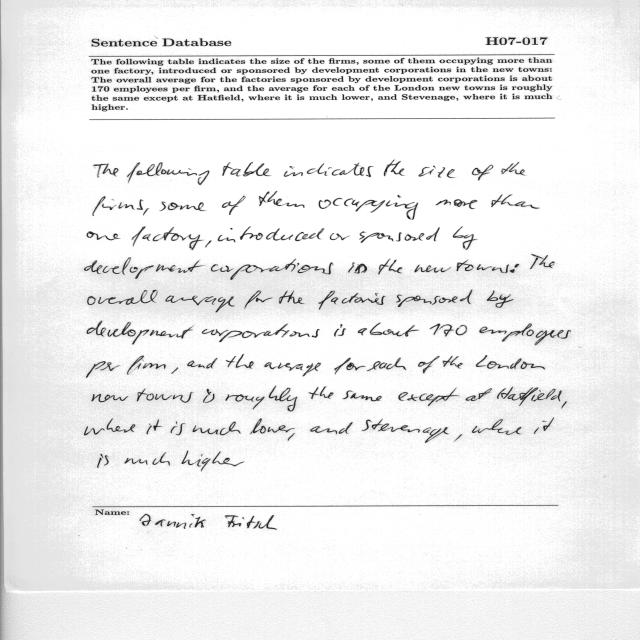 Sentence Database H07-017
The following table indicates the size of the firms, some of them occupying more than
one factory, introduced or sponsored by development corporations in the new towns:
The overall average for the factories sponsored by development corporations is about
170 employees per firm, and the average for each of the London new towns is roughly
the same except at Hatfield, where it is much lower, and Stevenage, where it is much
higher.
The following table indicates the size of the
firms, some of them occupying more than
one factory, introduced or sponsored by
development corporations in the new towns: The
overall average for the factories sponsored by
development corporations is about 170 employees
per firm, and the average for each of the London
new towns is roughly the same except at Hatfield,
where it is much lower, and Stevenage, where it
is much higher
Name: Jannik